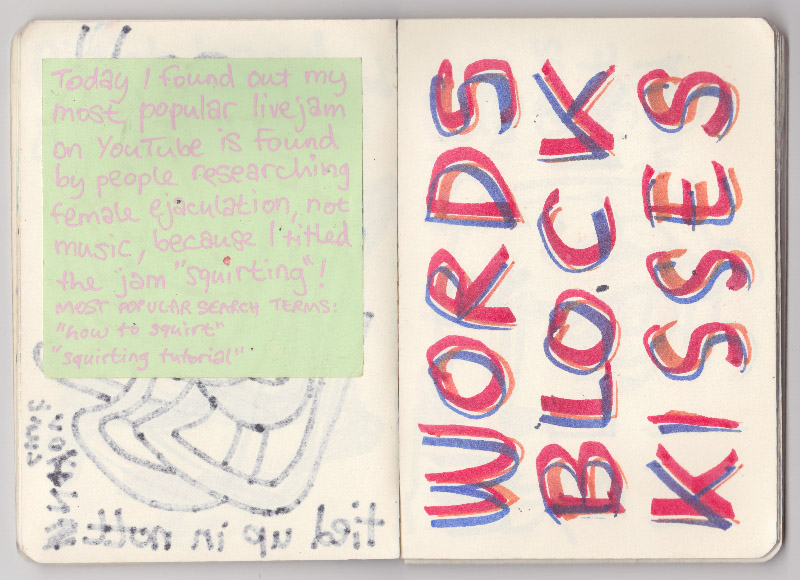 Today I found out my
most popular livejam
on YouTube is found
by people researching
female ejaculation, not
music, because I titled
the jam "squirting"!
MOST POPULAR SEARCH TERMS:
"how to squirt"
"squirting tutorial"
tied up in nott
WORDS
BLOCK
KISSES